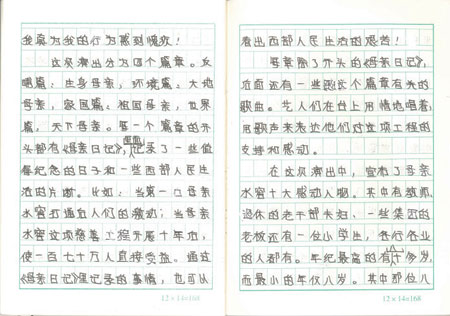 我真为我的行为感到惭愧！
这次演出分为四个篇章。反
哺篇：生身母亲，环境篇：大地
母亲，家国篇：祖国母亲，世界
篇，天下母亲。每一个篇章的开
头都有《母亲日记》，里面记录了一些值
得纪念的日子和一些西部人民生
活的片断。比如：当第一口母亲
水窖打造近人们的激动；当母亲
水窖这项慈善工程开展十年后，
使一百七十万人直接受益。通过
《母亲日记》里记录的事情，也可以
12×14=168
看出西部人民生活的艰苦！
每章除了开头的《母亲日记》，
后面还有一些跟这个篇章有关的
歌曲。艺人们在台上用情地唱着，
用歌声来表达他们对这项工程的
支持和感动。
在这次演出中，宣布了母亲
水窖十大感动人物。其中有教师、
退休的老干部夫妇、一些集团的
老板还有一位小学生，各行各业
的人都有。年纪最高的有十多岁，
而最小的年仅八岁。其中那位八
12×14=168